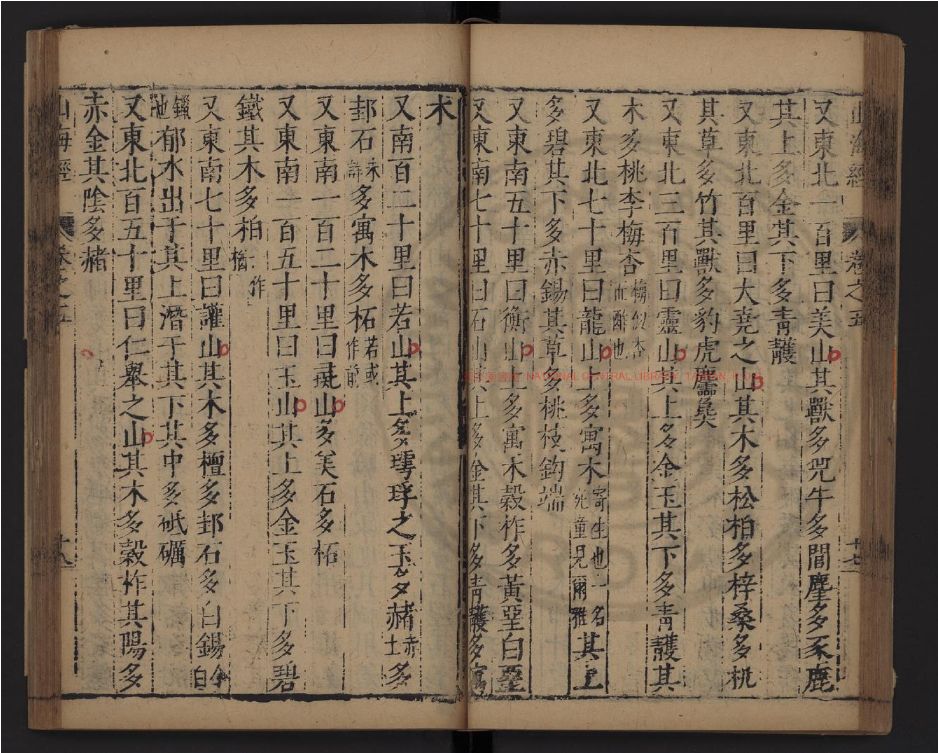 山海經 卷之五 十七
又東北一百里曰美山其獸多兕牛多閭麈多豕鹿
其上多金其下多青護
又東北百里曰大堯之山其木多松柏多梓桑多机
其草多竹其獸多豹虎麢㚟
又東北三百里曰靈山其上多金玉其下多青護其
木多桃李梅杏 梅似杏而酢也
又東北七十里曰龍山上多寓木 寄生也一名宛童見爾雅 其上
多碧其下多赤錫其草多桃枝鉤端
又東南五十里曰衡山上多寓木榖柞多黃堊白堊
又東南七十里曰石山其上多金其下多青護多寓
木
又南百二十里曰若山其上多㻬琈之玉多赭 赤土 多
封石 未詳 多寓木多柘 若或作前
又東南一百二十里曰彘山多美石多柘
又東南一百五十里曰玉山其上多金玉其下多碧
鐵其木多柏 一作
又東南七十里曰讙山其木多檀多封石多白錫 今白鑞也
郁水出于其上潛于其下其中多砥礪
又東北百五十里曰仁舉之山其木多榖柞其陽多
赤金其陰多赭
山海經 卷之五 十八
NATIONAL CENTRAL LIBRARY, TAIWAN